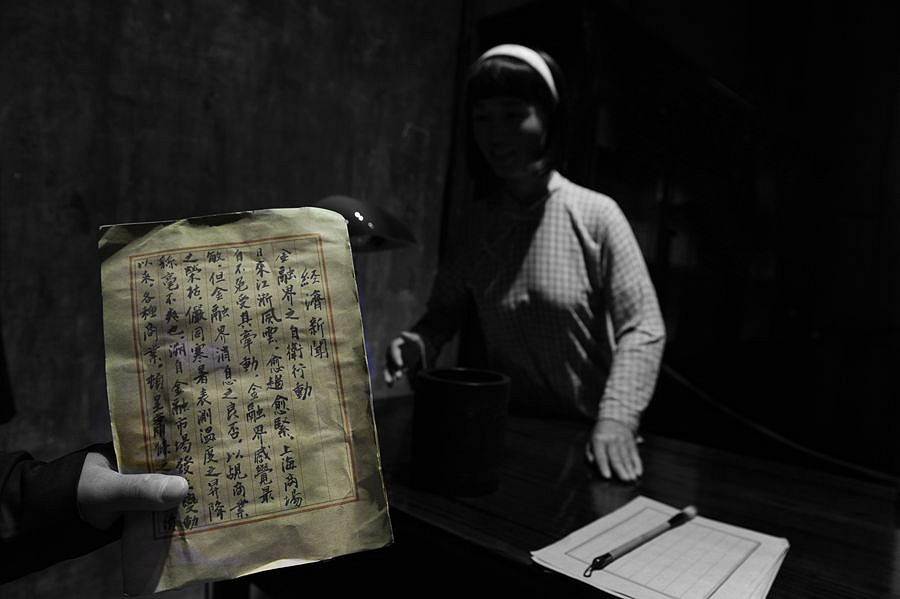 經濟新聞
金融界之自衛行動
日來江浙風雲，愈逼愈緊、上海商場
自不免受其牽動，金融界感覺最
敏，但金融界消息之良否，以覘商業
之榮枯，儼同寒暑表測溫度之昇降
稱毫不爽也，溯自金融市場發變動
以來，各種商業，頓呈蕭條之